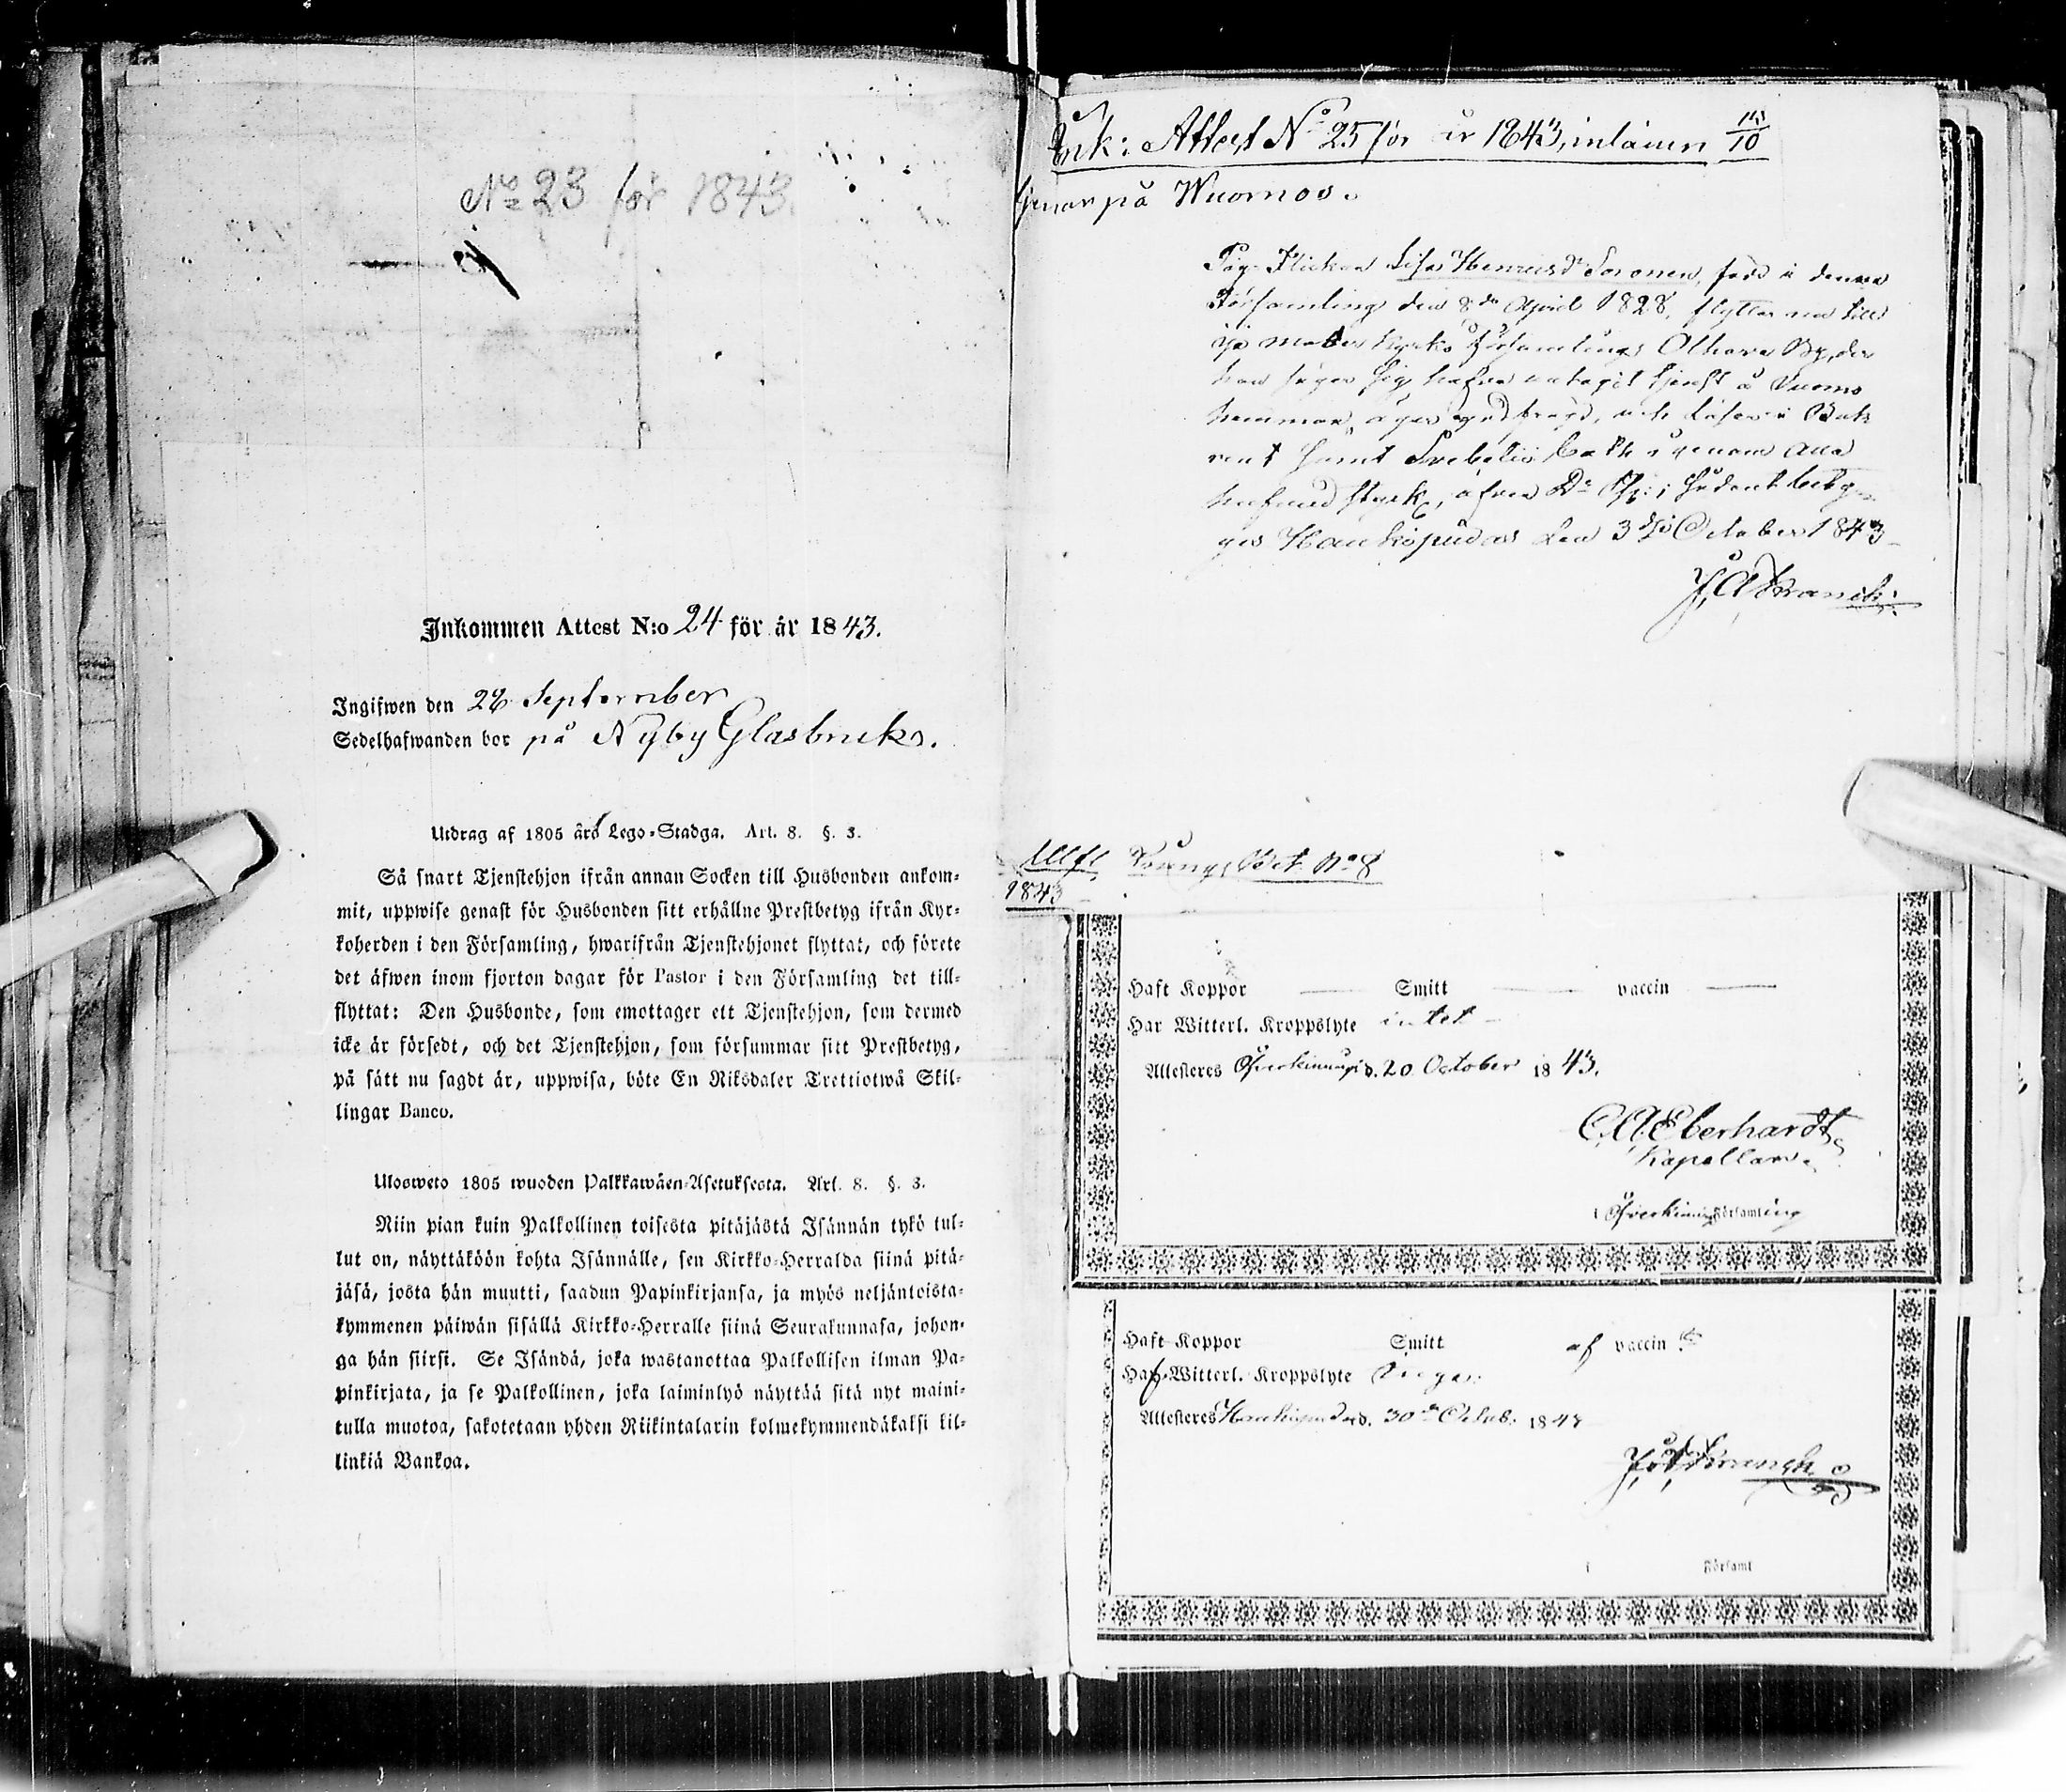 No 23 för 1843.
Inkommen Attest N:o 24 för år 1843.
Ingifwen den 28 September
Sedelhafwanden bor på Nyby Glasbruk.
Utdrag af 1805 års Lego-Stadga. Art. 8. §. 3.
Så snart Tjenstehjon ifrån annan Socken till Husbonden ankom-
mit, uppwise genast för Husbonden sitt erhållne Prestbetyg ifrån Kyr-
koherden i den Församling, hwarifrån Tjenstehjonet flyttat, och förete
det äfwen inom fjorton dagar för Pastor i den Församling det till-
flyttat: Den Husbonde, som emottager ett Tjenstehjon, som dermed
icke är försedt, och det Tjenstehjon, som försummar sitt Prestbetyg,
på sätt nu sagdt är, uppwisa, böte En Riksdaler Trettiotwå Skil-
lingar Banco.
Ulosweto 1805 wuoden Palkkawäen-Asetuksesta. Art. 8. §. 3.
Niin pian kuin Palkollinen toisesta pitäjästä Isännän tykö tul-
lut on, näyttäköön kohta Isännälle, sen Kirkko-Herralda siinä pitä-
jäsä, josta hän muutti, saadun Papinkirjansa, ja myös neljäntoista-
kymmenen päiwän sisällä Kirkko-Herralle siinä Seurakunnasa, johon-
ga hän siirsi. Se Isändä, joka wastanottaa Palkollisen ilman Pa-
pinkirjata, ja se Palkollinen, joka laiminlyö näyttää sitä nyt maini-
tulla muotoa, sakotetaan yhden Riikintalarin kolmekymmendäkaksi kil-
linkiä Bankoa.
Ink: Attest No 25 för år 1843, inlämn /10
tjenar på Wuornos.
Pig. Flickan Lisa Henricsdr Soronen, född i denna
Församling den 8de April 1828, flyttar nu till
Ijo moder kyrko Församlings Olhava By, der
hon säger sig hafva antagit tjenst å Vuorno
hemman, äger god frägd, och läser i Bok
rent samt Svebelii Cath: igenom alla
hufvud styck, äfven Do Sp; sådant bety-
ges Haukipudas den 3dje October 1843
J. A. Franck
1843
Haft Koppor — Smitt — vaccin —
Har Witterl. Kroppslyte intet –
Attesteres Öfverkiimingi d. 20 October 1843.
C. A. Eberhardt
Kapellan.
i Öfverkiimingi Församling
Haft Koppor Smitt af vaccin
Haf Witterl. Kroppslyte
Attesteres Haukipudas d. 30de Octob. 1843
J. A. Franck
i Församl